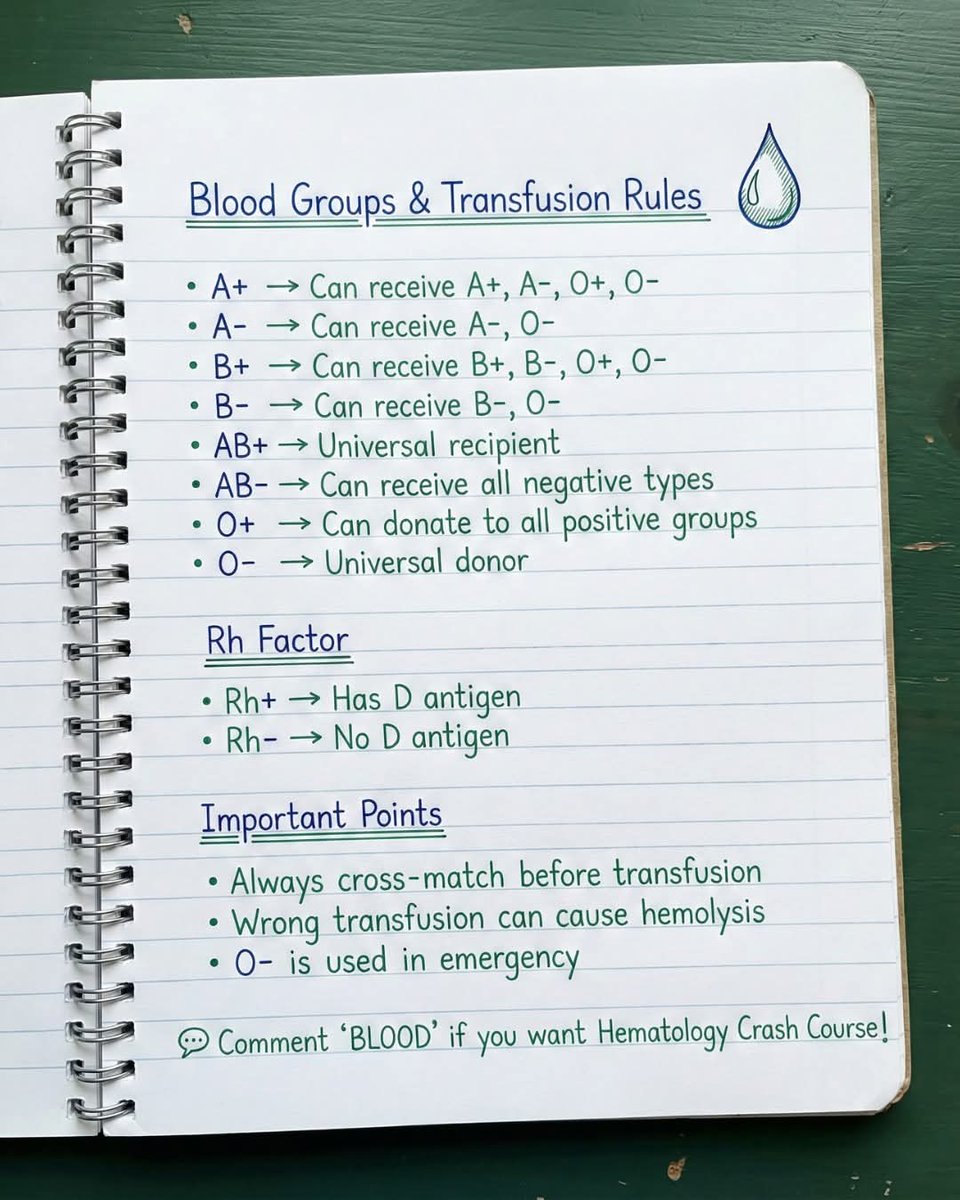 Blood Groups & Transfusion Rules
• A+ → Can receive A+, A-, O+, O-
• A- → Can receive A-, O-
• B+ → Can receive B+, B-, O+, O-
• B- → Can receive B-, O-
• AB+ → Universal recipient
• AB- → Can receive all negative types
• O+ → Can donate to all positive groups
• O- → Universal donor
Rh Factor
• Rh+ → Has D antigen
• Rh- → No D antigen
Important Points
• Always cross-match before transfusion
• Wrong transfusion can cause hemolysis
• O- is used in emergency
💬 Comment ‘BLOOD’ if you want Hematology Crash Course!